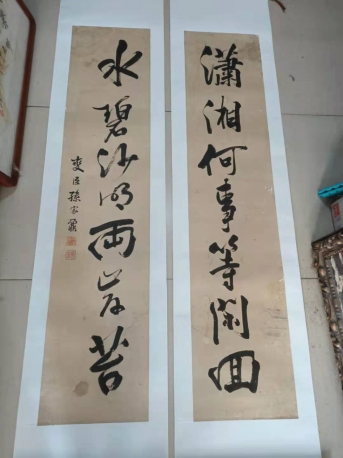 瀟湘何事等閑回
水碧沙明兩岸苔
燮臣孫家鼐